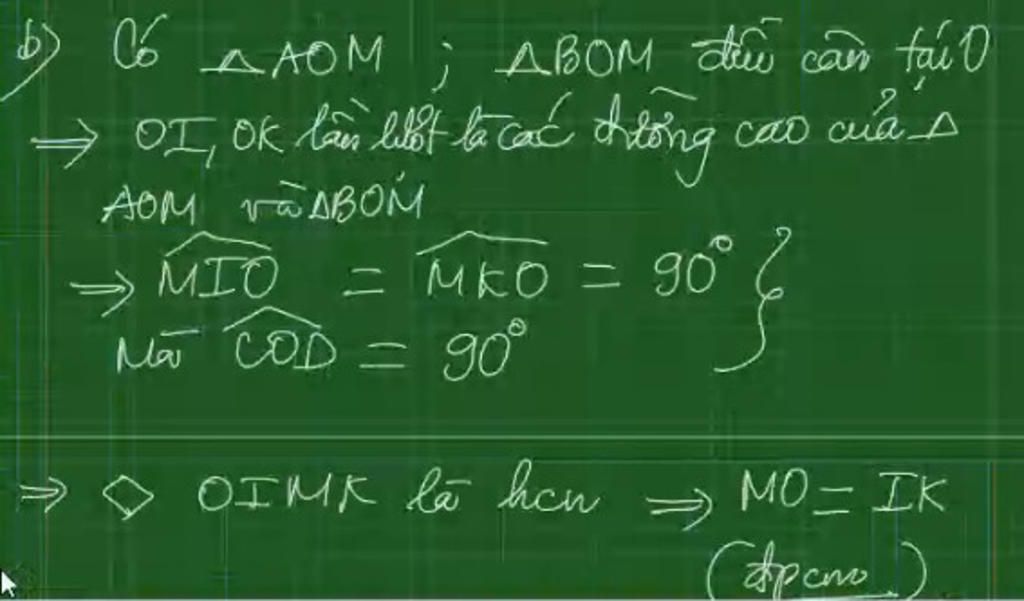 b) Có △AOM ; △BOM đều cân tại O
⇒ OI, OK lần lượt là các đường cao của △
AOM và △BOM
⇒ \widehat{MIO} = \widehat{MKO} = 90° }
Mà \widehat{COD} = 90°
⇒ ◇ OIMK là hcn ⇒ MO = IK
(đpcm)